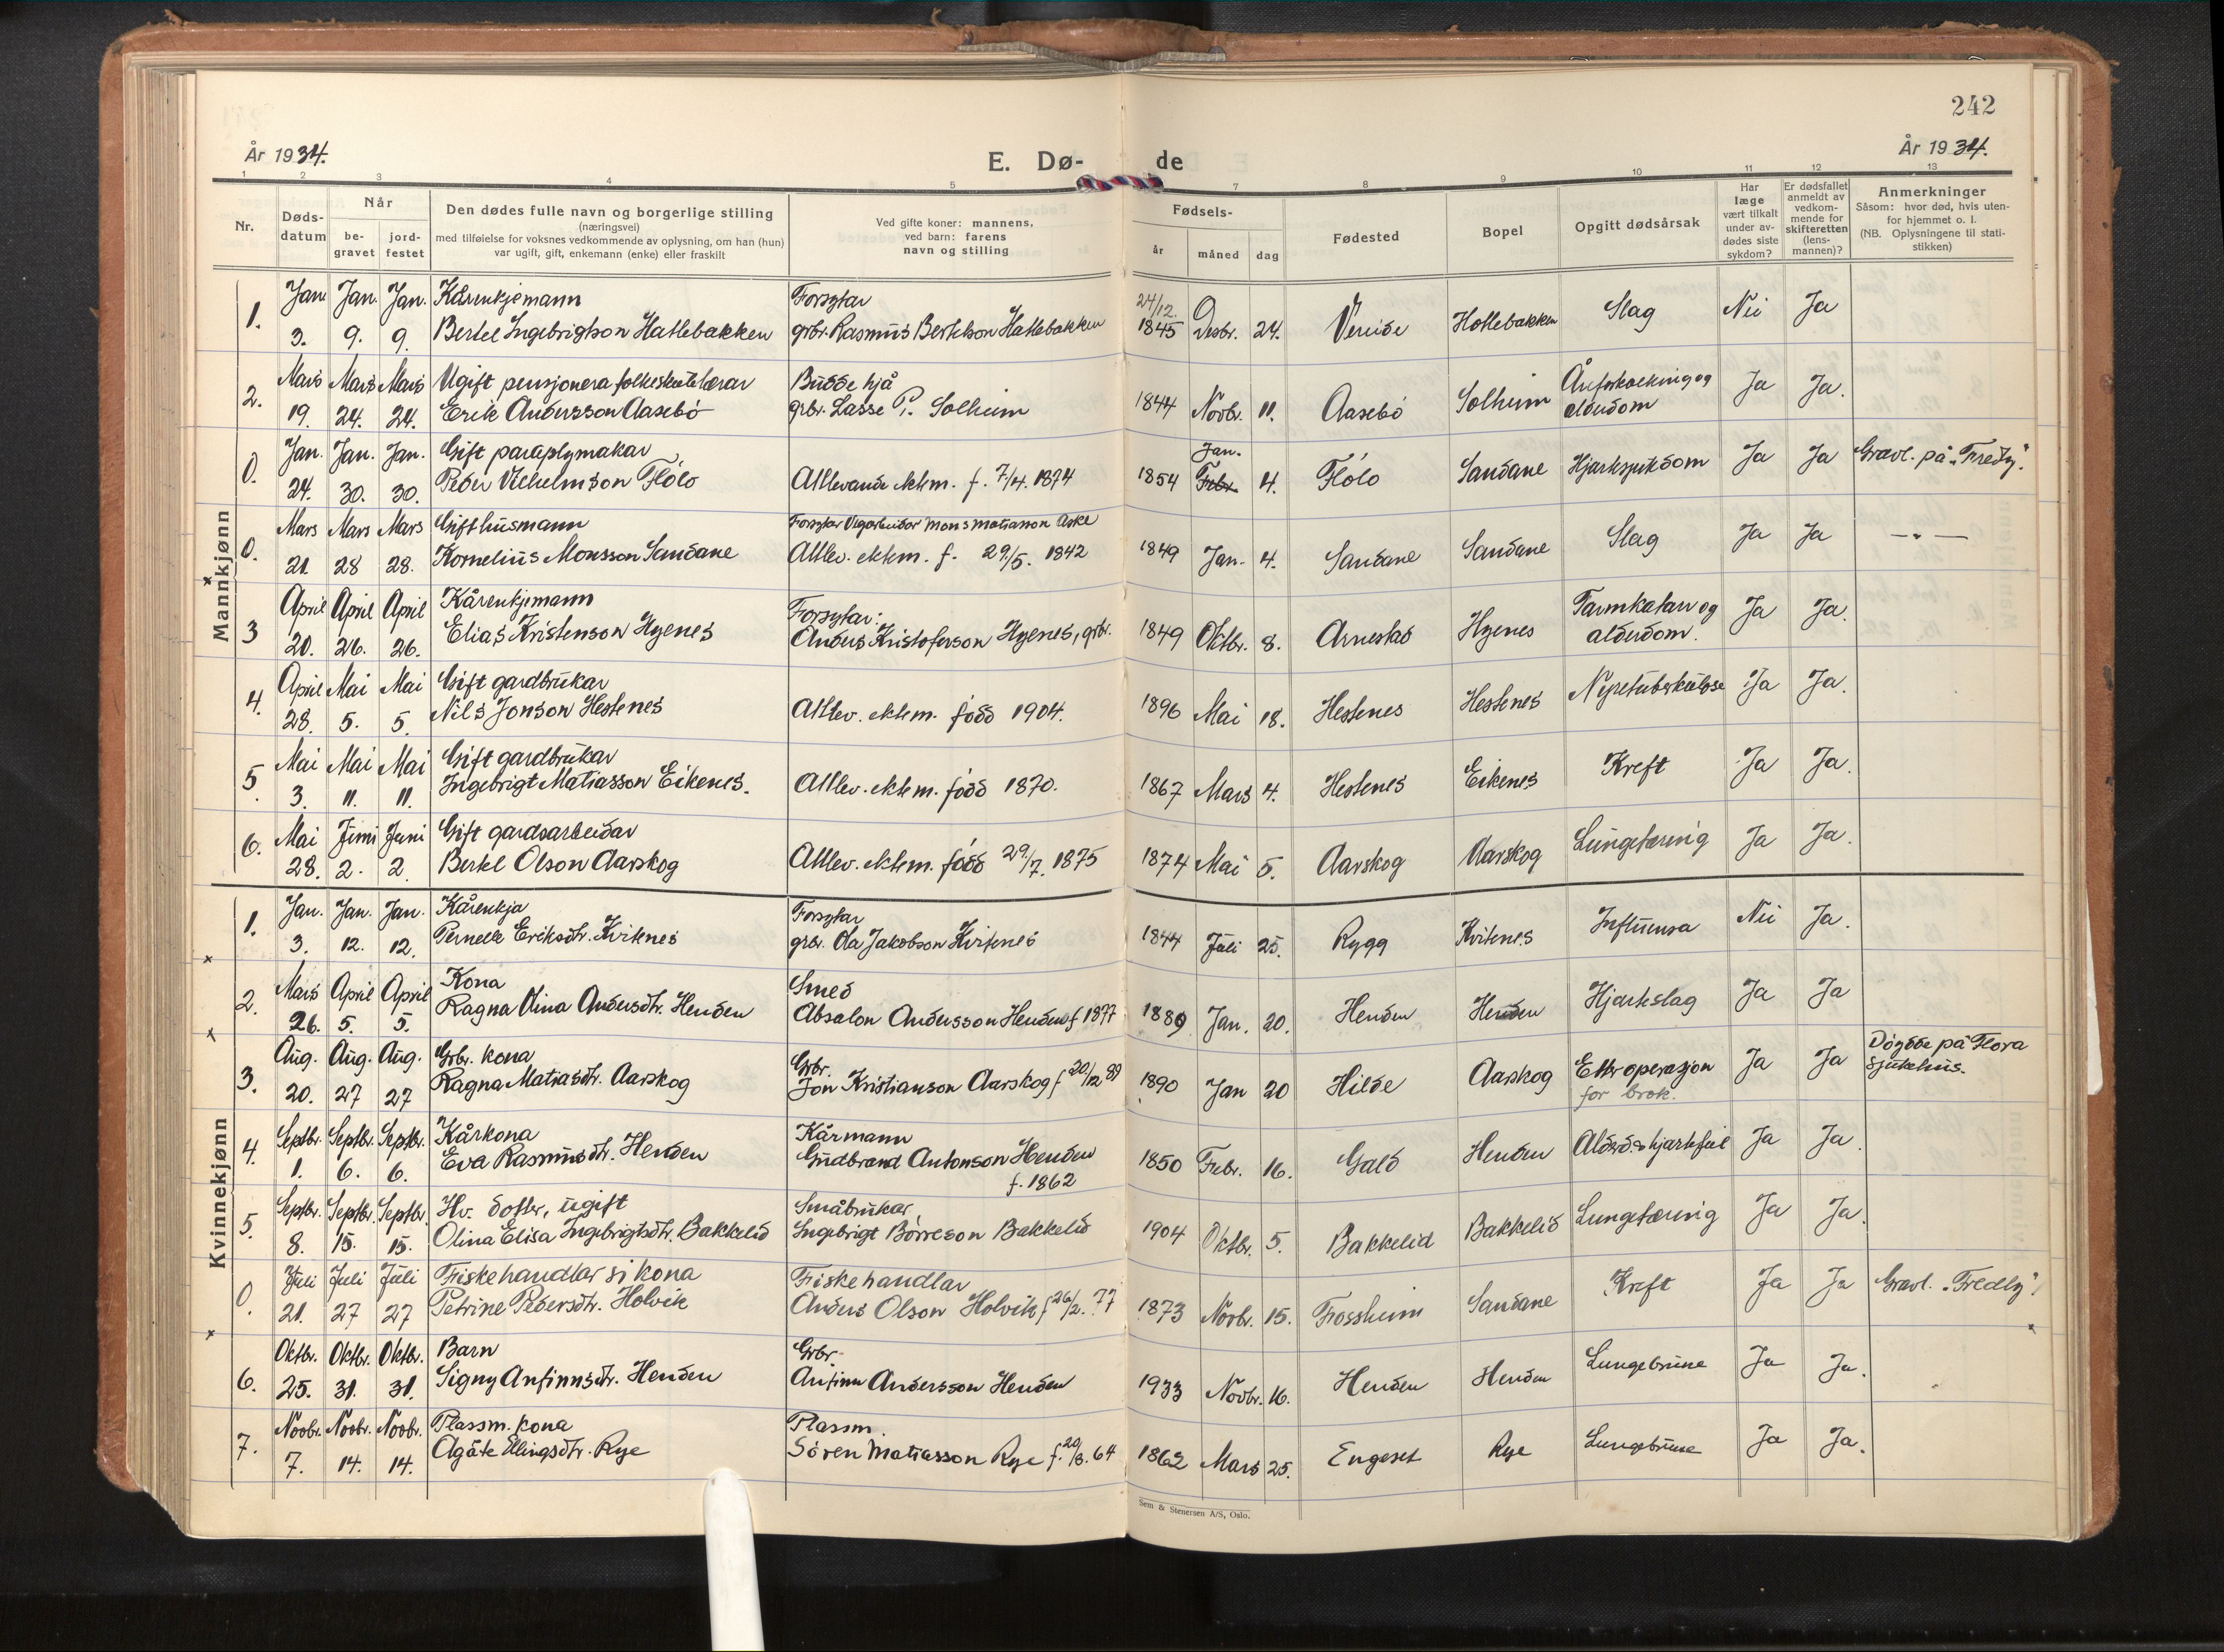 242
År 1934.
E. Dø-
de
År 1934.
1 2 3 4 5 7 8 9 10 11 12 13
Nr.
Døds-
datum
Når
be-
gravet
jord-
festet
Den dødes fulle navn og borgerlige stilling
(næringsvei)
med tilføielse for voksnes vedkommende av oplysning, om han (hun)
var ugift, gift, enkemann (enke) eller fraskilt
Ved gifte koner: mannens,
ved barn: farens
navn og stilling
Fødsels-
år måned dag
Fødested
Bopel
Opgitt dødsårsak
Har
læge
vært tilkalt
under av-
dødes siste
sykdom?
Er dødsfallet
anmeldt av
vedkom-
mende for
skifteretten
(lens-
mannen)?
Anmerkninger
Såsom: hvor død, hvis uten-
for hjemmet o. l.
(NB. Oplysningene til stati-
stikken)
Mannkjønn
Jan. Jan. Jan. Kårenkjemann Forsytar 24/12.
1. 3. 9. 9. Bertel Ingebrigtson Hatlebakken grbr. Rasmus Bertelson Hatlebakken 1845 Desbr. 24. Vereide Hatlebakken Slag Nei Ja
Mars Mars Mars Ugift pensjonera folkeskulelærar Budde hjå Åreforkalkning og
2. 19. 24. 24. Erik Andersson Aasebø grbr. Lasse P. Solheim 1844 Novbr. 11. Aasebø Solheim alderdom Ja Ja.
Jan. Jan. Jan. Gift paraplymakar Jan.
0. 24. 30. 30. Peder Vilhelmson Flölo Attlevande ektem. f. 7/4. 1874 1854 Febr. 4. Flölo Sandane Hjartesjukdom Ja Ja Gravl. på "Fredly".
Mars Mars Mars Gift husmann Forsytar Vegarbeidar Mons Matiasson Aske
0. 21. 28 28. Kornelius Monsson Sandane Attlev. ektem. f. 29/5. 1842 1849 Jan. 4. Sandane Sandane Slag Ja Ja — " —
April April April Kårenkjemann Forsytar: Tarmkatarr og
3 20. 26. 26. Elias Kristenson Hyenes Anders Kristoferson Hyenes, grbr. 1849 Oktbr. 8. Arnestad Hyenes alderdom. Ja Ja.
April Mai Mai Gift gardbrukar
4. 28. 5. 5. Nils Jonson Hestenes Attlev. ektem. född 1904. 1896 Mai 18. Hestenes Hestenes Nyretuberkulose Ja Ja.
Mai Mai Mai Gift gardbrukar
5. 3. 11. 11. Ingebrigt Matiasson Eikenes. Attlev. ektem. född 1870. 1867 Mars 4. Hestenes Eikenes Kreft Ja Ja.
Mai Juni Juni Gift gardsarbeidar
6. 28. 2. 2. Bertel Olson Aarskog Attlev. ektem. född 29/7. 1875 1874 Mai 5. Aarskog Aarskog Lungetæring Ja Ja.
Kvinnekjønn
Jan. Jan. Jan. Kårenkja Forsytar
1. 3. 12. 12. Pernelle Eriksdtr. Kvitenes grbr. Ola Jakobson Kvitenes 1844 Juli 25. Rygg Kvitenes Influensa Nei Ja.
Mars April April Kona Smed
2. 26. 5. 5. Ragna Olina Andersdtr. Henden Absalon Andersson Henden f 1877 1889 Jan. 20. Henden Henden Hjarteslag Ja Ja
Aug. Aug. Aug. Grbr. kona Grbr. Etter operasjon Döydde på Flora
3. 20. 27 27 Ragna Matiasdtr. Aarskog Jon Kristianson Aarskog f 20/12 89 1890 Jan 20 Hilde Aarskog for brok. Ja Ja Sjukehus.
Septbr. Septbr. Septbr. Kårkona Kårmann
4. 1. 6. 6. Eva Rasmusdtr. Henden Gudbrand Antonson Henden 1850 Febr. 16. Gald Henden Alderd. & hjartefeil Ja Ja.
f. 1862
Septbr. Septbr. Septbr. Hv. dotter, ugift Småbrukar
5. 8. 15. 15. Olina Elisa Ingebrigtsdtr. Bakkelid Ingebrigt Börreson Bakkelid 1904 Oktbr. 5. Bakkelid Bakkelid Lungetæring Ja Ja.
Juli Juli Juli Fiskehandlar si kona Fiskehandlar
0. 21. 27 27 Petrine Pedersdtr. Holvik Anders Olson Holvik f 26/2. 77 1873 Novbr. 15. Frossheim Sandane Kreft Ja Ja Gravl. "Fredly"
Oktbr. Oktbr. Oktbr. Barn Grbr.
6. 25. 31. 31. Signy Anfinnsdtr. Henden Anfinn Andersson Henden 1933 Novbr. 16. Henden Henden Lungebrune Ja Ja.
Novbr. Novbr. Novbr. Plassm. kona Plassm.
7. 7. 14. 14. Agåte Ellingsdtr. Rye Sören Matiasson Rye f. 20/8. 64 1862 Mars 25. Engeset Rye Lungebrune Ja Ja.
Sem & Stenersen A/S, Oslo.